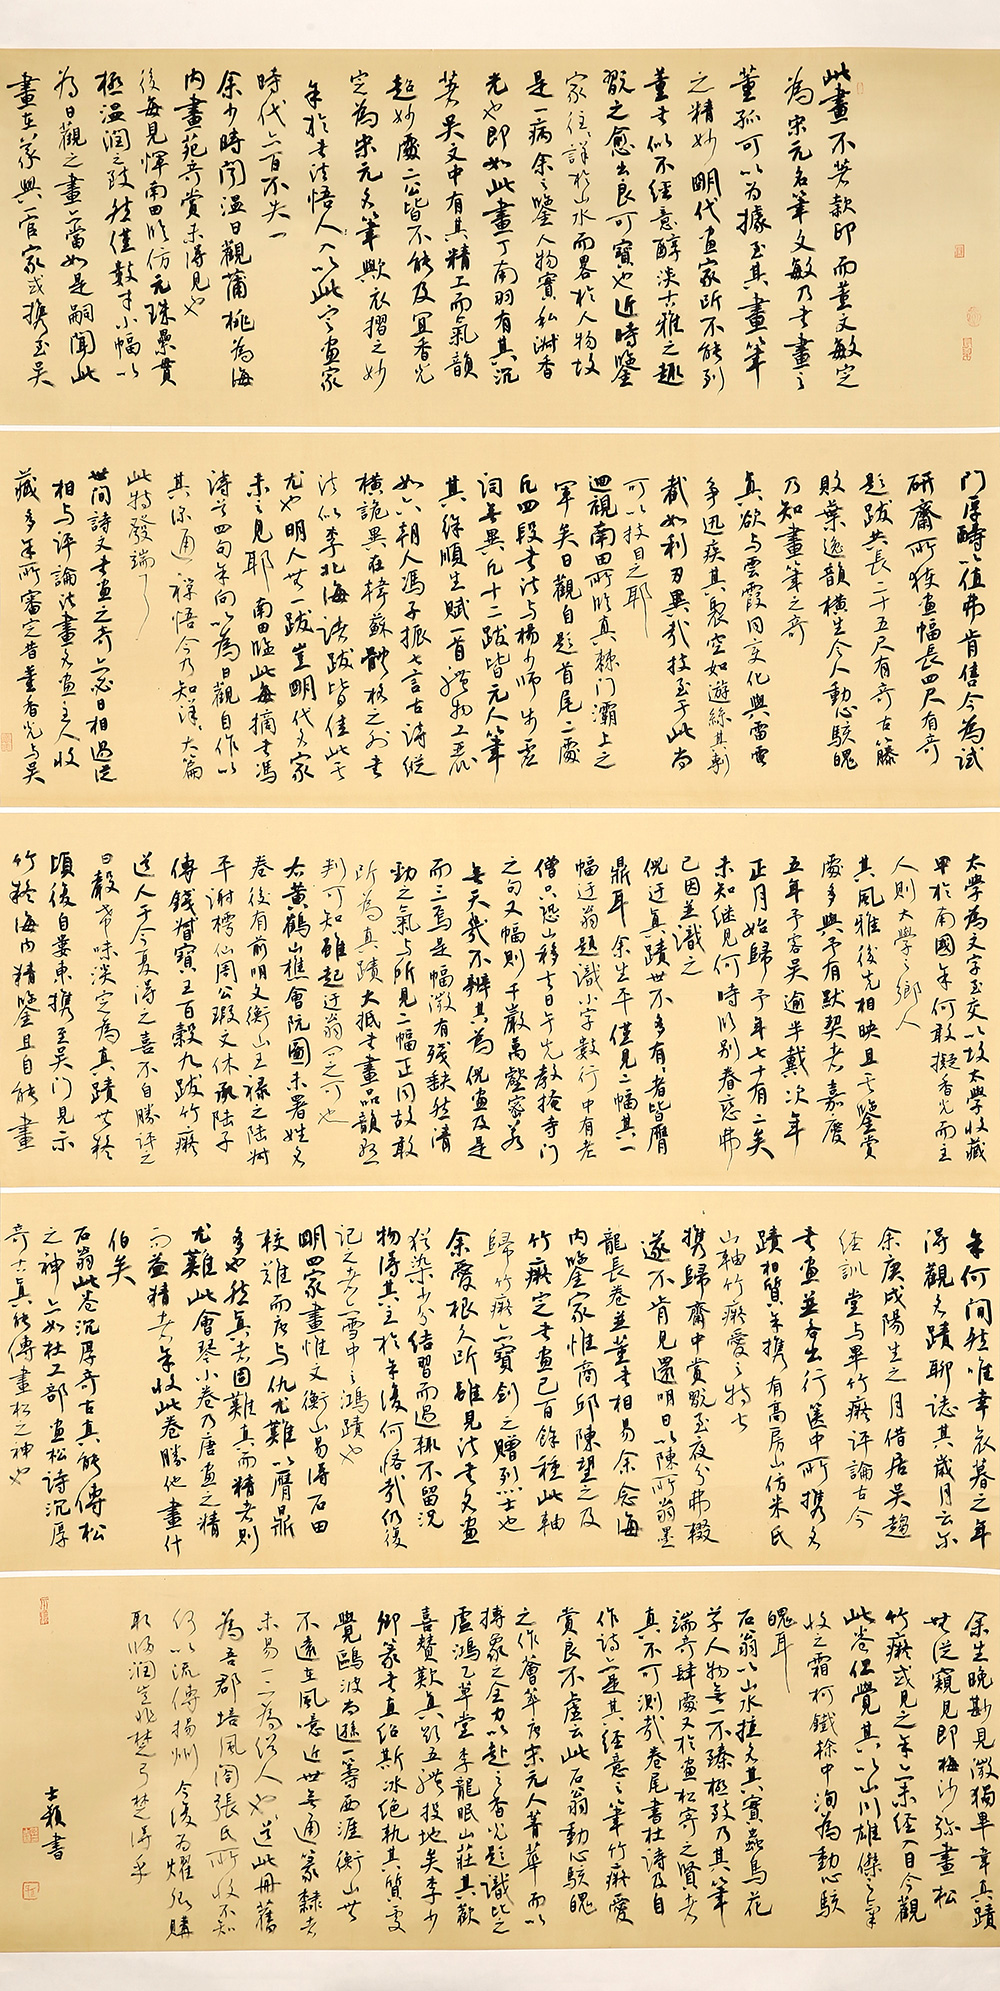 此畫不署款印而董文敏定
為宋元名筆文敏乃書畫之
董孤可以為據至其畫筆
之精妙明代畫家所不能到
董書似不經意醇淡古雅之趣
翫之愈出良可寶也近時鑒
家往詳於山水而畧於人物故
是一病余之鑒人物實私淑香
光也即如此畫丁南羽有其沉
著吳文中有其精工而氣韻
超妙處二公皆不能及冝香光
定為宋元名筆歟衣摺之妙
余於書法悟入以此定畫家
時代亦百不失一
余少時聞温日觀蒲桃為海
内畫苑奇賞未得見也
後每見惲南田臨仿元珠纍貫
極温潤之致然僅數寸小幅以
為日觀之畫當如是嗣聞此
畫在蒙興官家或携至吴
門厚酬值弗肯售今為試
研齋所獲畫幅長四尺有奇
題跋共長二十五尺有奇古藤
敗葉逸韻橫生令人動心駭魄
乃知畫筆之奇
真欲与雲霞同变化與雷電
争迅疾其裊空如遊絲其剸
截如利刃異哉技至于此尚
可以技目之耶
迴視南田所臨真棘門灞上之
軍矣日觀自題首尾二處
凡四段書法与楊少師步虚
詞無異凡十二跋皆元人筆
其徐順生賦一首體物工麗
如六朝人馮子振七言古詩縱
橫詭異在韓蘇體格之外書
法似李北海諸跋皆佳此於
尤也明人無一跋豈明代名家
未之見耶南田臨此每摘書馮
詩首四句余向以為日觀自作以
其深通禪悟今乃知詳大篇
此特發端
世间詩文書畫之奇亦必日相過從
相与評論法書名畫主人收
藏多余所審定昔董香光与吴
太學為文字至交以故太學收藏
甲於南國余何敢擬香光而主
人則太學之鄉人
其風雅後先相映且其鑒賞
處多與予有默契者嘉慶
五年予客吴逾半載次年
正月始歸予年七十有二矣
未知継見何時临别眷恋弗
已因並識之
倪迂真蹟世不多有有者皆膺
鼎耳余生平僅見二幅其一
幅迂翁題識小字數行中有老
僧只恐山移去日午先教掩寺门
之句又幅則千巖萬壑寥若
無天幾不辨其為倪畫及是
而三焉是幅微有残缺然清
勁之氣与所見二幅正同故敢
所為真蹟大抵書畫品韻
判可知雖起迂翁問之可也
右黄鶴山樵會阮圖未署姓名
卷後有前明文衡山王禄之陸
平謝樗仙周公瑕文休承陸子
傳錢叔寶王百穀九跋竹癡
道人于今夏得之喜不自勝评之
曰
頃後自婁東携至吴门見示
竹癡海内精鑒且自能畫
余何间然唯幸衰暮之年
得觀名蹟聊誌其歲月云尔
余庚戌陽生之月借居吴趨
经訓堂与畢竹癡评論古今
書畫並各出行箧中所携名
蹟相質余携有高房山仿米氏
山軸竹癡愛之特甚
携歸齋中賞翫至夜分弗辍
遂不肯見還明日以陳所翁墨
龍長卷並董書相易余念海
内鑒家惟商邱陳望之及
竹癡定書畫已百餘種此軸
歸竹癡亦寶剑之赠烈士也
余愛根久断雖見法書名畫
猶染少分结習而過輒不留况
物得其主於余復何悋哉仍後
記之者亦雪中之鴻蹟也
明四家畫惟文衡山易得石田
較难而唐与仇尤難以膺鼎
多也然真者固難真而精者則
尤難此會琴小卷乃唐畫之精
而益精者余收此卷勝他畫什
伯矣
石翁此卷沉厚奇古真能傳松
之神亦如杜工部画松詩沉厚
奇古真能傳畫松之神也
余生晚尠見澂獨畢韋真蹟
無從窺見即梅沙弥畫松
竹癡或見之余亦未经入目今觀
此卷但覺其以山川雄傑之氣
收之霜柯鐵榦中洵為動心駭
魄耳
石翁以山水擅名其實蟲鳥花
草人物無一不臻極致乃其筆
端奇肆處又於畫松寄之贤者
真不可測哉卷尾書杜诗及自
作诗亦並其经意之筆竹癡愛
賞良不虚云此石翁動心駭魄
之作薈萃唐宋元人菁華而以
搏象之全力以赴之香光題識比之
盧鴻乙草堂李龍眠山莊其歎
喜赞歎真欲五體投地矣李少
卿篆書直绍斯冰绝軌其質雯
覺鷗波尚遜一籌西涯衡山世
不遠在風噫近世無通篆隸者
未易一二為俗人也道此册舊
為吾郡培風阁張氏所收不知
何以流傳揚州今後为耀卿購
取临润豈非楚弓楚得乎
士穎書